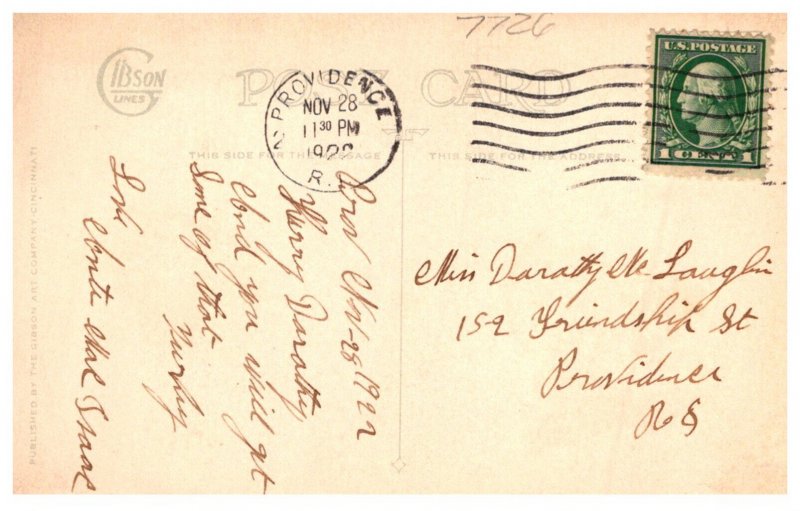 7726
GIBSON
LINES
POST CARD
THIS SIDE FOR THE MESSAGE
THIS SIDE FOR THE ADDRESS
PUBLISHED BY THE GIBSON ART COMPANY·CINCINNATI
PROVIDENCE
NOV 28
11 30 PM
R.
U.S. POSTAGE
1 CENT 1
Prov Nov-28 1922
Hurry Darathy
And you will get
Some of that
Turkey
Love
Isaac
Miss Darathy Mc Laughlin
152 Friendship St
Providence